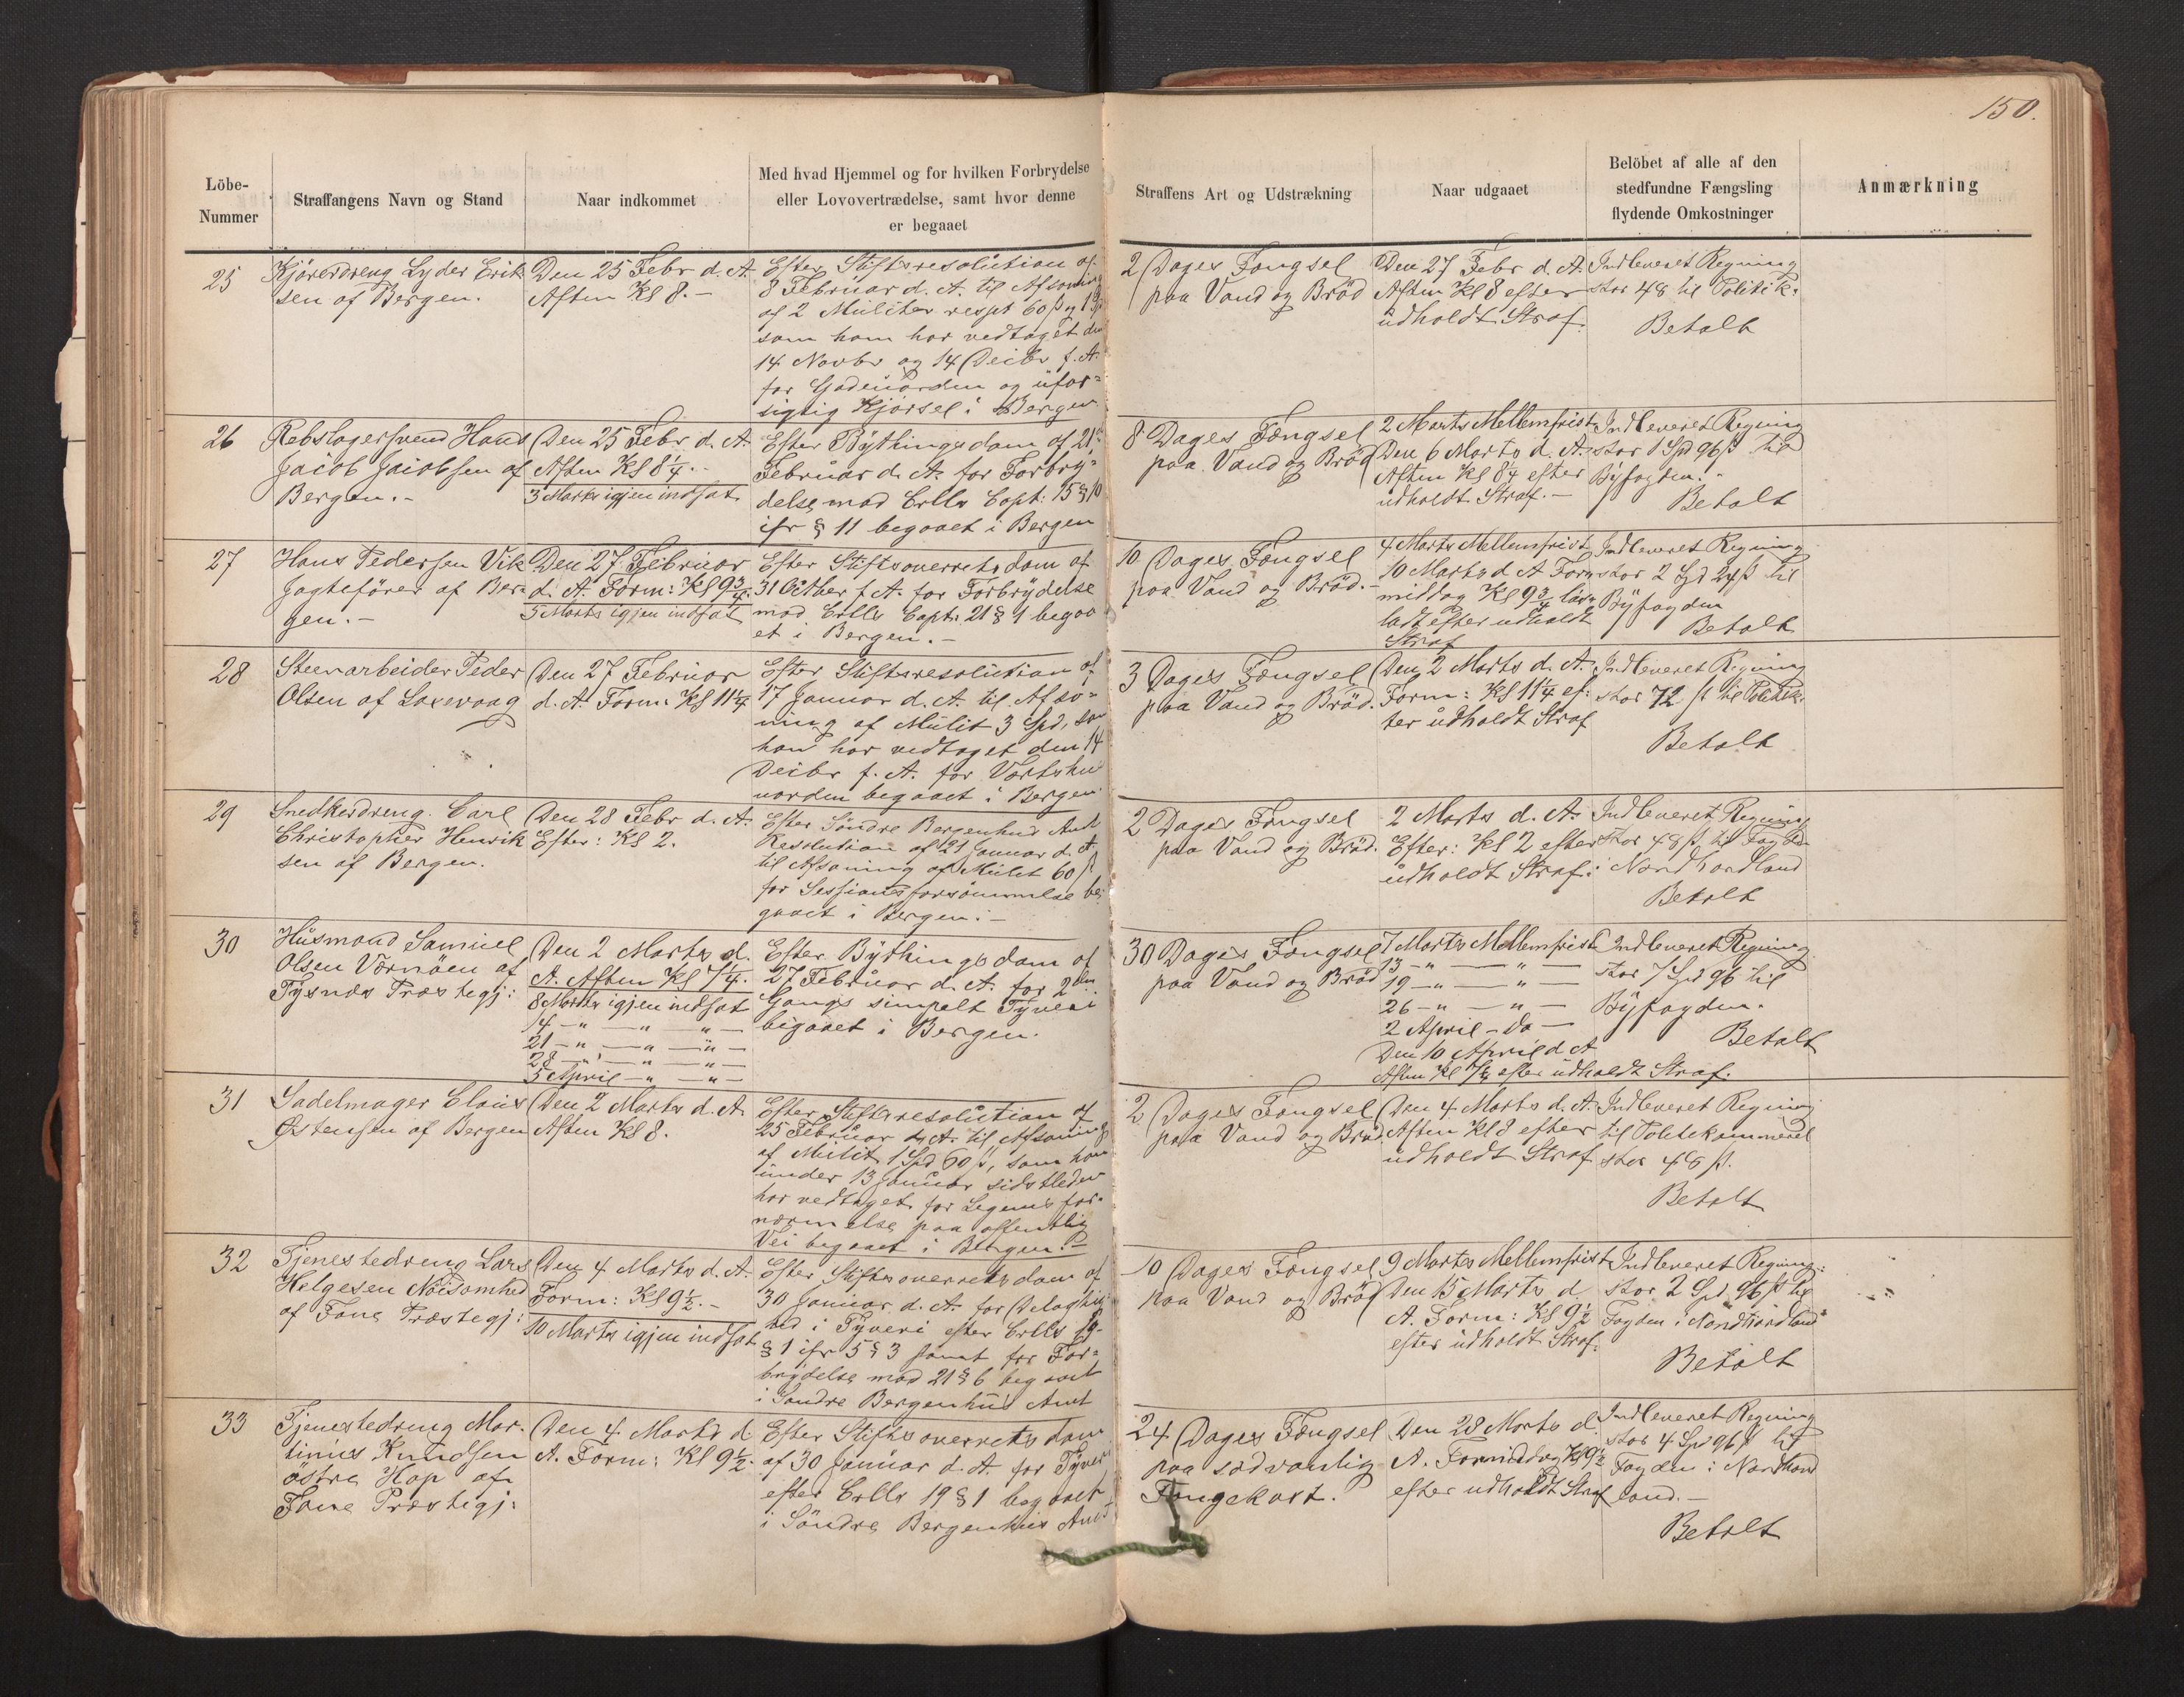 150.
Löbe-
Nummer
Straffangens Navn og Stand
Naar indkommet
Med hvad Hjemmel og for hvilken Forbrydelse
eller Lovovertrædelse, samt hvor denne
er begaaet
Straffens Art og Udstrækning
Naar udgaaet
Belöbet af alle af den
stedfundne Fængsling
flydende Omkostninger
Anmærkning
25
Kjörerdreng Lyder Erik
sen af Bergen.
Den 25 Febr d. A.
Aften Kl 8. –
Efter Stiftsresolution af
8 Februar d. A. til Afsoning
af 2 Mulcter respt 60 ß og 1 Spd
som ham har vedtaget den
14 Novbr og 14 Decbr f. A.
for Gadeuorden og ufor=
sigtig Kjörsel i Bergen
2 Dages Fængsel
paa Vand og Bröd
Den 27 Febr d. A.
Aften Kl 8 efter
udholdt Straf.
Indleveret Regning
stor 48 til Politik.
Betalt
26
Rebslagersvend Hans
Jacob Jacobsen af
Bergen. –
Den 25 Febr d. A.
Aften Kl 8 1/4. -
3 Marts igjen indsat
Efter Bythingsdom af 21de
Februar d. A. for Forbry=
delse mod Crlls Capt: 15 § 10
ifr § 11 begaaet i Bergen
8 Dages Fængsel
paa Vand og Bröd
2 Marts Mellemfrist
Den 6 Marts d. A.
Aften Kl 8 1/4 efter
udholdt Straf. –
Indleveret Regning
stor 1 Spd 96 ß til
Byfogden. -
Betalt
27
Hans Pedersen Vik
Jagtefører af Ber=
gen. –
Den 27 Februar
d. A. Form: Kl 9 3/4.
5 Marts igjen indsat
Efter Stiftsoverrets dom af
31 Octber f. A. for Forbrydelse
mod Crlls Capt: 21 § 1 begaa
et i Bergen. –
10 Dages Fængsel
paa Vand og Bröd. –
4 Marts Mellemfrist
10 Marts d A For=
middag Kl 9 3/4 lös=
ladt efter udholdt
Straf
Indleveret Regning
stor 2 Spd 24 ß til
Byfogden
Betalt
28
Steenarbeider Peder
Olsen af Laxevaag
Den 27 Februar
d. A. Form: Kl 11 1/4
Efter Stiftsresolution af
17 Januar d. A. til Afso=
ning af Mulct 3 Spd, som
han har vedtaget den 14
Decbr f. A. for Værtshus
uorden begaaet i Bergen.
3 Dages Fængsel
paa Vand og Bröd.
Den 2 Marts d. A.
Form: Kl 11 1/4 ef=
ter udholdt Straf
Indleveret Regning
stor 72 ß til Politik.
Betalt
29
Snedkerdreng Carl
Christopher Henrik
sen af Bergen.
Den 28 Febr d. A.
Efter: Kl 2.
Efter Söndre Bergenhus Amts
Resolution af 21 Januar d. A.
til Afsoning af Mulct 60 ß
for Sessionsforsömmelse be
gaaet i Bergen: –
2 Dages Fængsel
paa Vand og Bröd.
2 Marts d. A.
Efter: Kl 2 efter
udholdt Straf:
Indleveret Regning
stor 48 ß til Fogden
i Nordhordland
Betalt
30
Husmand Samuel
Olsen Værnöen af
Tysnæs Præstegj:
Den 2 Marts d.
A. Aften Kl 7 1/4.
8 Marts igjen indsat
14 – " – " – " –
21 – " – " – " –
28 – " – " – " –
5 April – " – " –
Efter Bythingsdom af
27 Februar d. A. for 2den
Gangs simpelt Tyveri
begaaet i Bergen.
30 Dages Fængsel
paa Vand og Bröd
7 Marts Mellemfrist
13 – " – " –
19 – " – " –
26 – " – " –
2 April – do –
Den 10 April d. A
Aften Kl 7 1/4 efter udholdt Straf.
Indleveret Regning
stor 7 Spd 96 til
Byfogden.
Betalt
31
Sadelmager Claus
Østensen af Bergen
Den 2 Marts d. A.
Aften Kl 8.
Efter Stiftsresolution af
25 Februar d. A. til Afsoning
af Mulct 1 Spd 60 ß, som han
under 13 Januar sidstleden
har vedtaget for Legemsfor=
nærmelse paa offentlig
Vei begaaet i Bergen. –
2 Dages Fængsel
paa Vand og Bröd
Den 4 Marts d. A.
Aften Kl 8 efter
udholdt Straf
Indleveret Regning
til Politikammeret
stor 48 ß.
Betalt
32
Tjenestedreng Lars
Helgesen Nöisomhed
af Fane Præstegj:
Den 4 Marts d. A.
Form: Kl 9 1/2. –
10 Marts igjen indsat
Efter Stiftsoverrets dom af
30 Januar d. A. for Delagtig
hed i Tyveri efter Crlls 19-
§ 1 ifr 5 § 3 samt for For=
brydelse mod 21 § 6 begaaet
i Söndre Bergenhus Amt
10 Dages Fængsel
paa Vand og Bröd
9 Marts Mellemfrist
Den 15 Marts d.
A. Form: Kl 9 1/2
efter udholdt Straf.
Indleveret Regning:
stor 2 Spd 96 ß til
Fogden i Nordhordland
Betalt
33
Tjenestedreng Mar=
tinius Knudsen
östre Hop af
Fane Præstegj:
Den 4 Marts d
A. Form: Kl 9 1/2.
Efter Stiftsoverrets dom
af 30 Januar d. A. for Tyveri
efter Crlls 19 § 1 begaaet
i Söndre Bergenhus Amt
24 Dages Fængsel
paa sædvanlig
Fangekost.
Den 28 Marts d.
A. Formiddag Kl 9 1/2
efter udholdt Straf
Indleveret Regning
stor 4 Spd 96 ß til
Fogden i Nordhord
land. –
Betalt